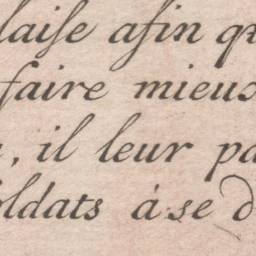 laise afin qu
faire mieux
, il leur pa
oldats à se d